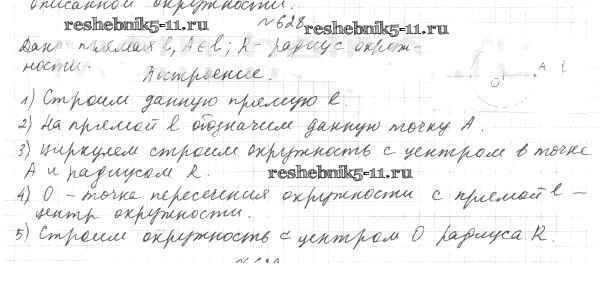 описанной окружности.
№628
reshebnik5-11.ru
Дано: прямая l, A∈l; R - радиус окруж-
ности.
Построение.
A l
O
1) Строим данную прямую l.
2) На прямой l обозначим данную точку A.
3) Циркулем строим окружность с центром в точке
A и радиусом R.
reshebnik5-11.ru
4) O - точка пересечения окружности с прямой l -
центр окружности.
5) Строим окружность с центром O радиуса R.